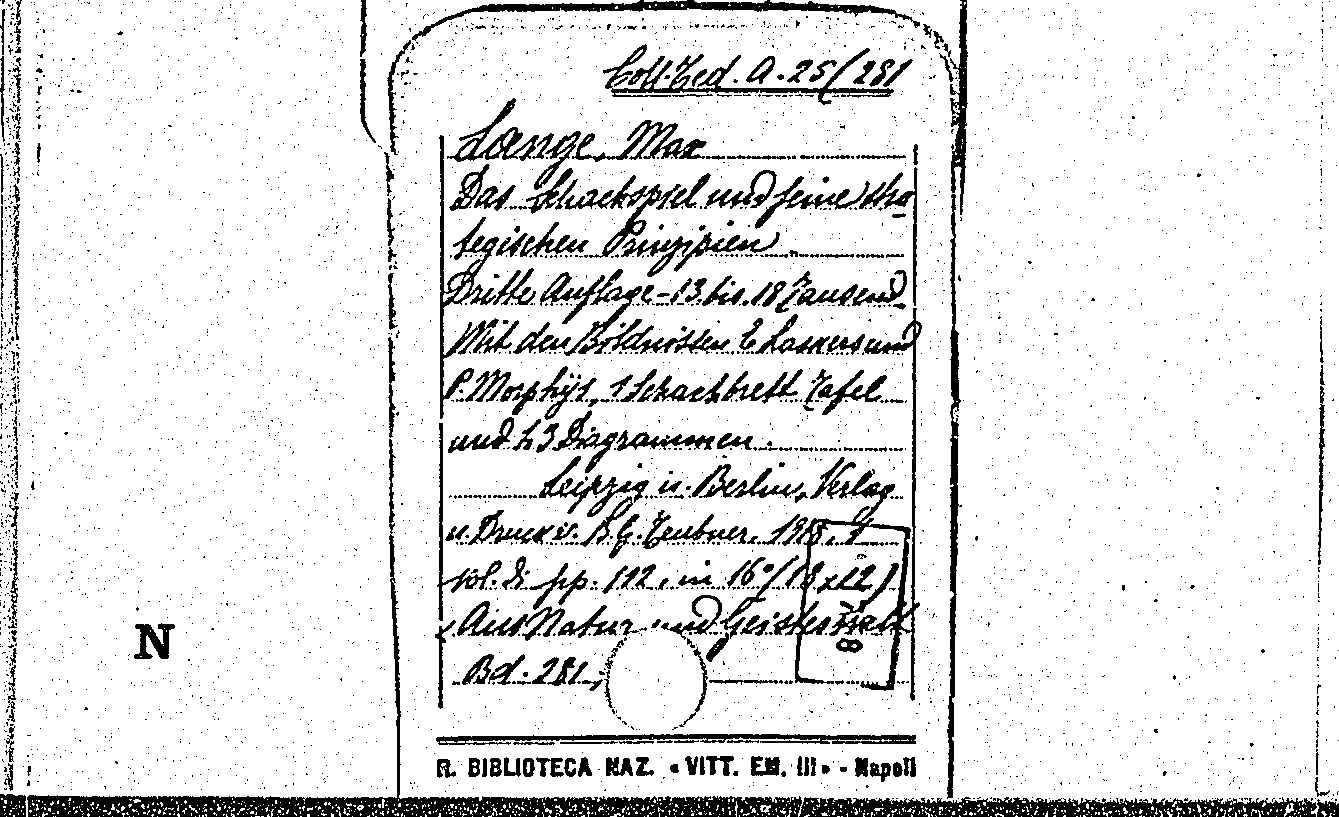 Coll. Ted. A. 25/281
Lange, Max
Das Schachspiel und seine stra
tegischen Prinzipien.
Dritte Auflage - 13. bis 18 Tausend
Mit den Bildnissen E. Laskers und
P. Morphys, 1 Schachbrett Tafel
und 43 Diagrammen.
Leipzig u. Berlin, Verlag
u. Druck v. B. G. Teubner. 1918. 1
vol. di pp. 112, in 16° (18 x 12)
Aus Natur und Geisteswelt
Bd. 281,
N
R. BIBLIOTECA NAZ. « VITT. EM. III » - Napoli